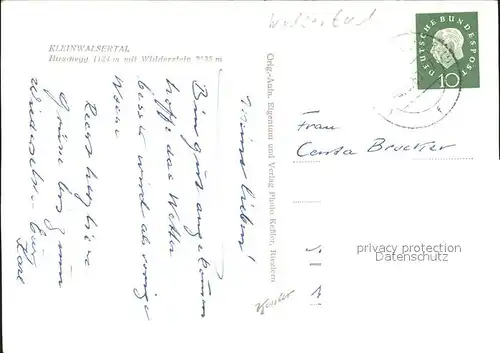 Walsertal
KLEINWALSERTAL
Hirschegg 1124 m mit Widderstein 2535 m
DEUTSCHE BUNDESPOST
10
Orig.-Aufn. Eigentum und Verlag Photo Keßler, Riezlern
Keßler
Meine Lieben!
Bin gut angekommen
hoffe das Wetter
besser wird als vorige
Woche
Recht herzliche
Grüße bis zum
Wiedersehn. Eure
Frau
Centa Brucker
privacy protection
Datenschutz